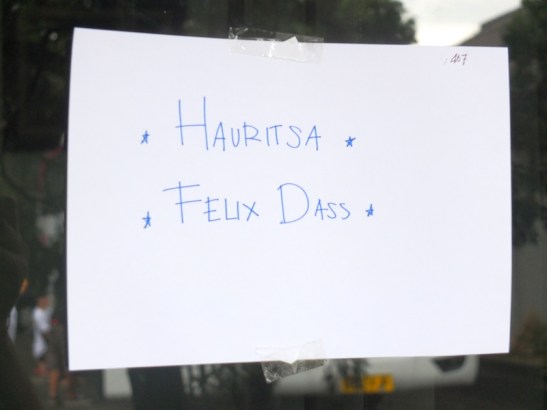 * HAURITSA *
* FELIX DASS *